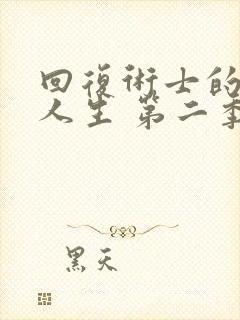 回復術士的
人生 第二季
黑天